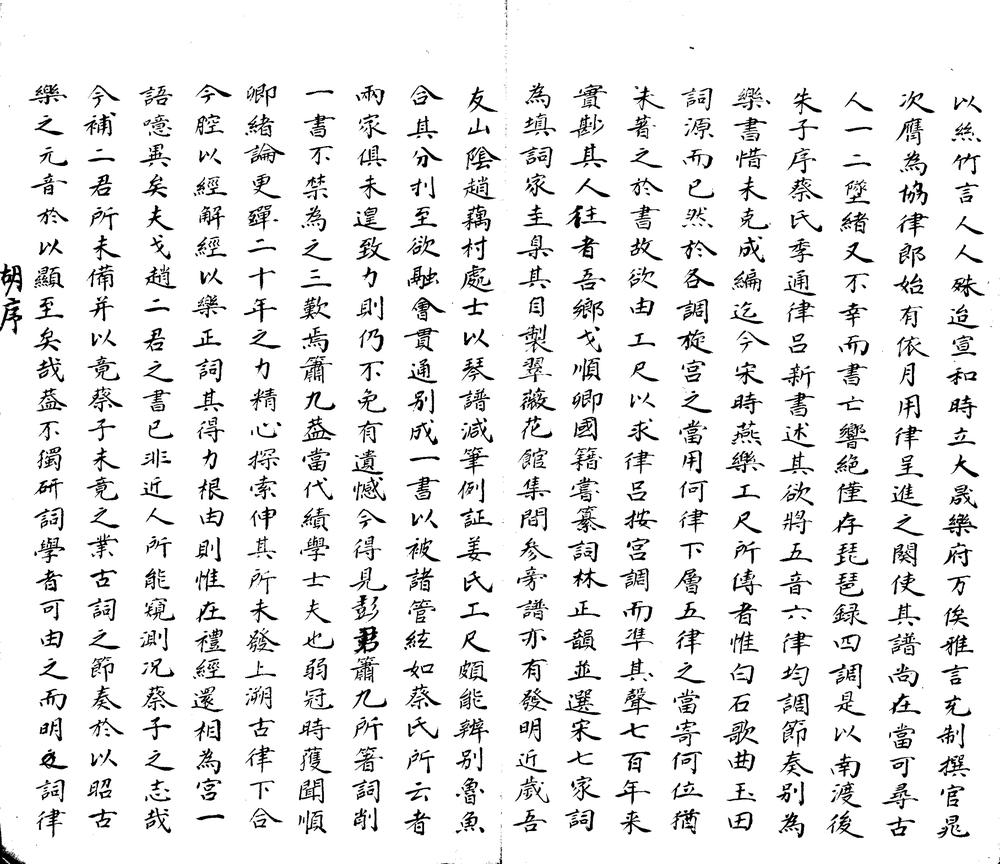 以絲竹言人人殊迨宣和時立大晟樂府万俟雅言充制撰官晁
次膺為協律郎始有依月用律呈進之闋使其譜尚在當可尋古
人一二墜緒又不幸而書亡響絕僅存琵琶録四調是以南渡後
朱子序蔡氏季通律呂新書述其欲將五音六律均調節奏別為
樂書惜未克成編迄今宋時燕樂工尺所傳者惟白石歌曲玉田
詞源而已然於各調旋宮之當用何律下層五律之當寄何位猶
未著之於書故欲由工尺以求律呂按宮調而準其聲七百年来
實尠其人往者吾鄉戈順卿國籍嘗纂詞林正韻並選宋七家詞
為填詞家圭臬其自製翠薇花館集間参旁譜亦有發明近歲吾
友山陰趙藕村處士以琴譜減筆例証姜氏工尺頗能辨別魯魚
合其分刌至欲融會貫通別成一書以被諸管絃如蔡氏所云者
兩家俱未遑致力則仍不免有遺憾今得見彭君簫九所箸詞削
一書不禁為之三歎焉簫九葢當代績學士夫也弱冠時獲聞順
卿緒論更殫二十年之力精心探索伸其所未發上溯古律下合
今腔以經解經以樂正詞其得力根由則惟在禮經還相為宮一
語噫異矣夫戈趙二君之書已非近人所能窺測况蔡子之志哉
今補二君所未備并以竟蔡子未竟之業古詞之節奏於以昭古
樂之元音於以顯至矣哉葢不獨研詞學者可由之而明夫詞律
胡序